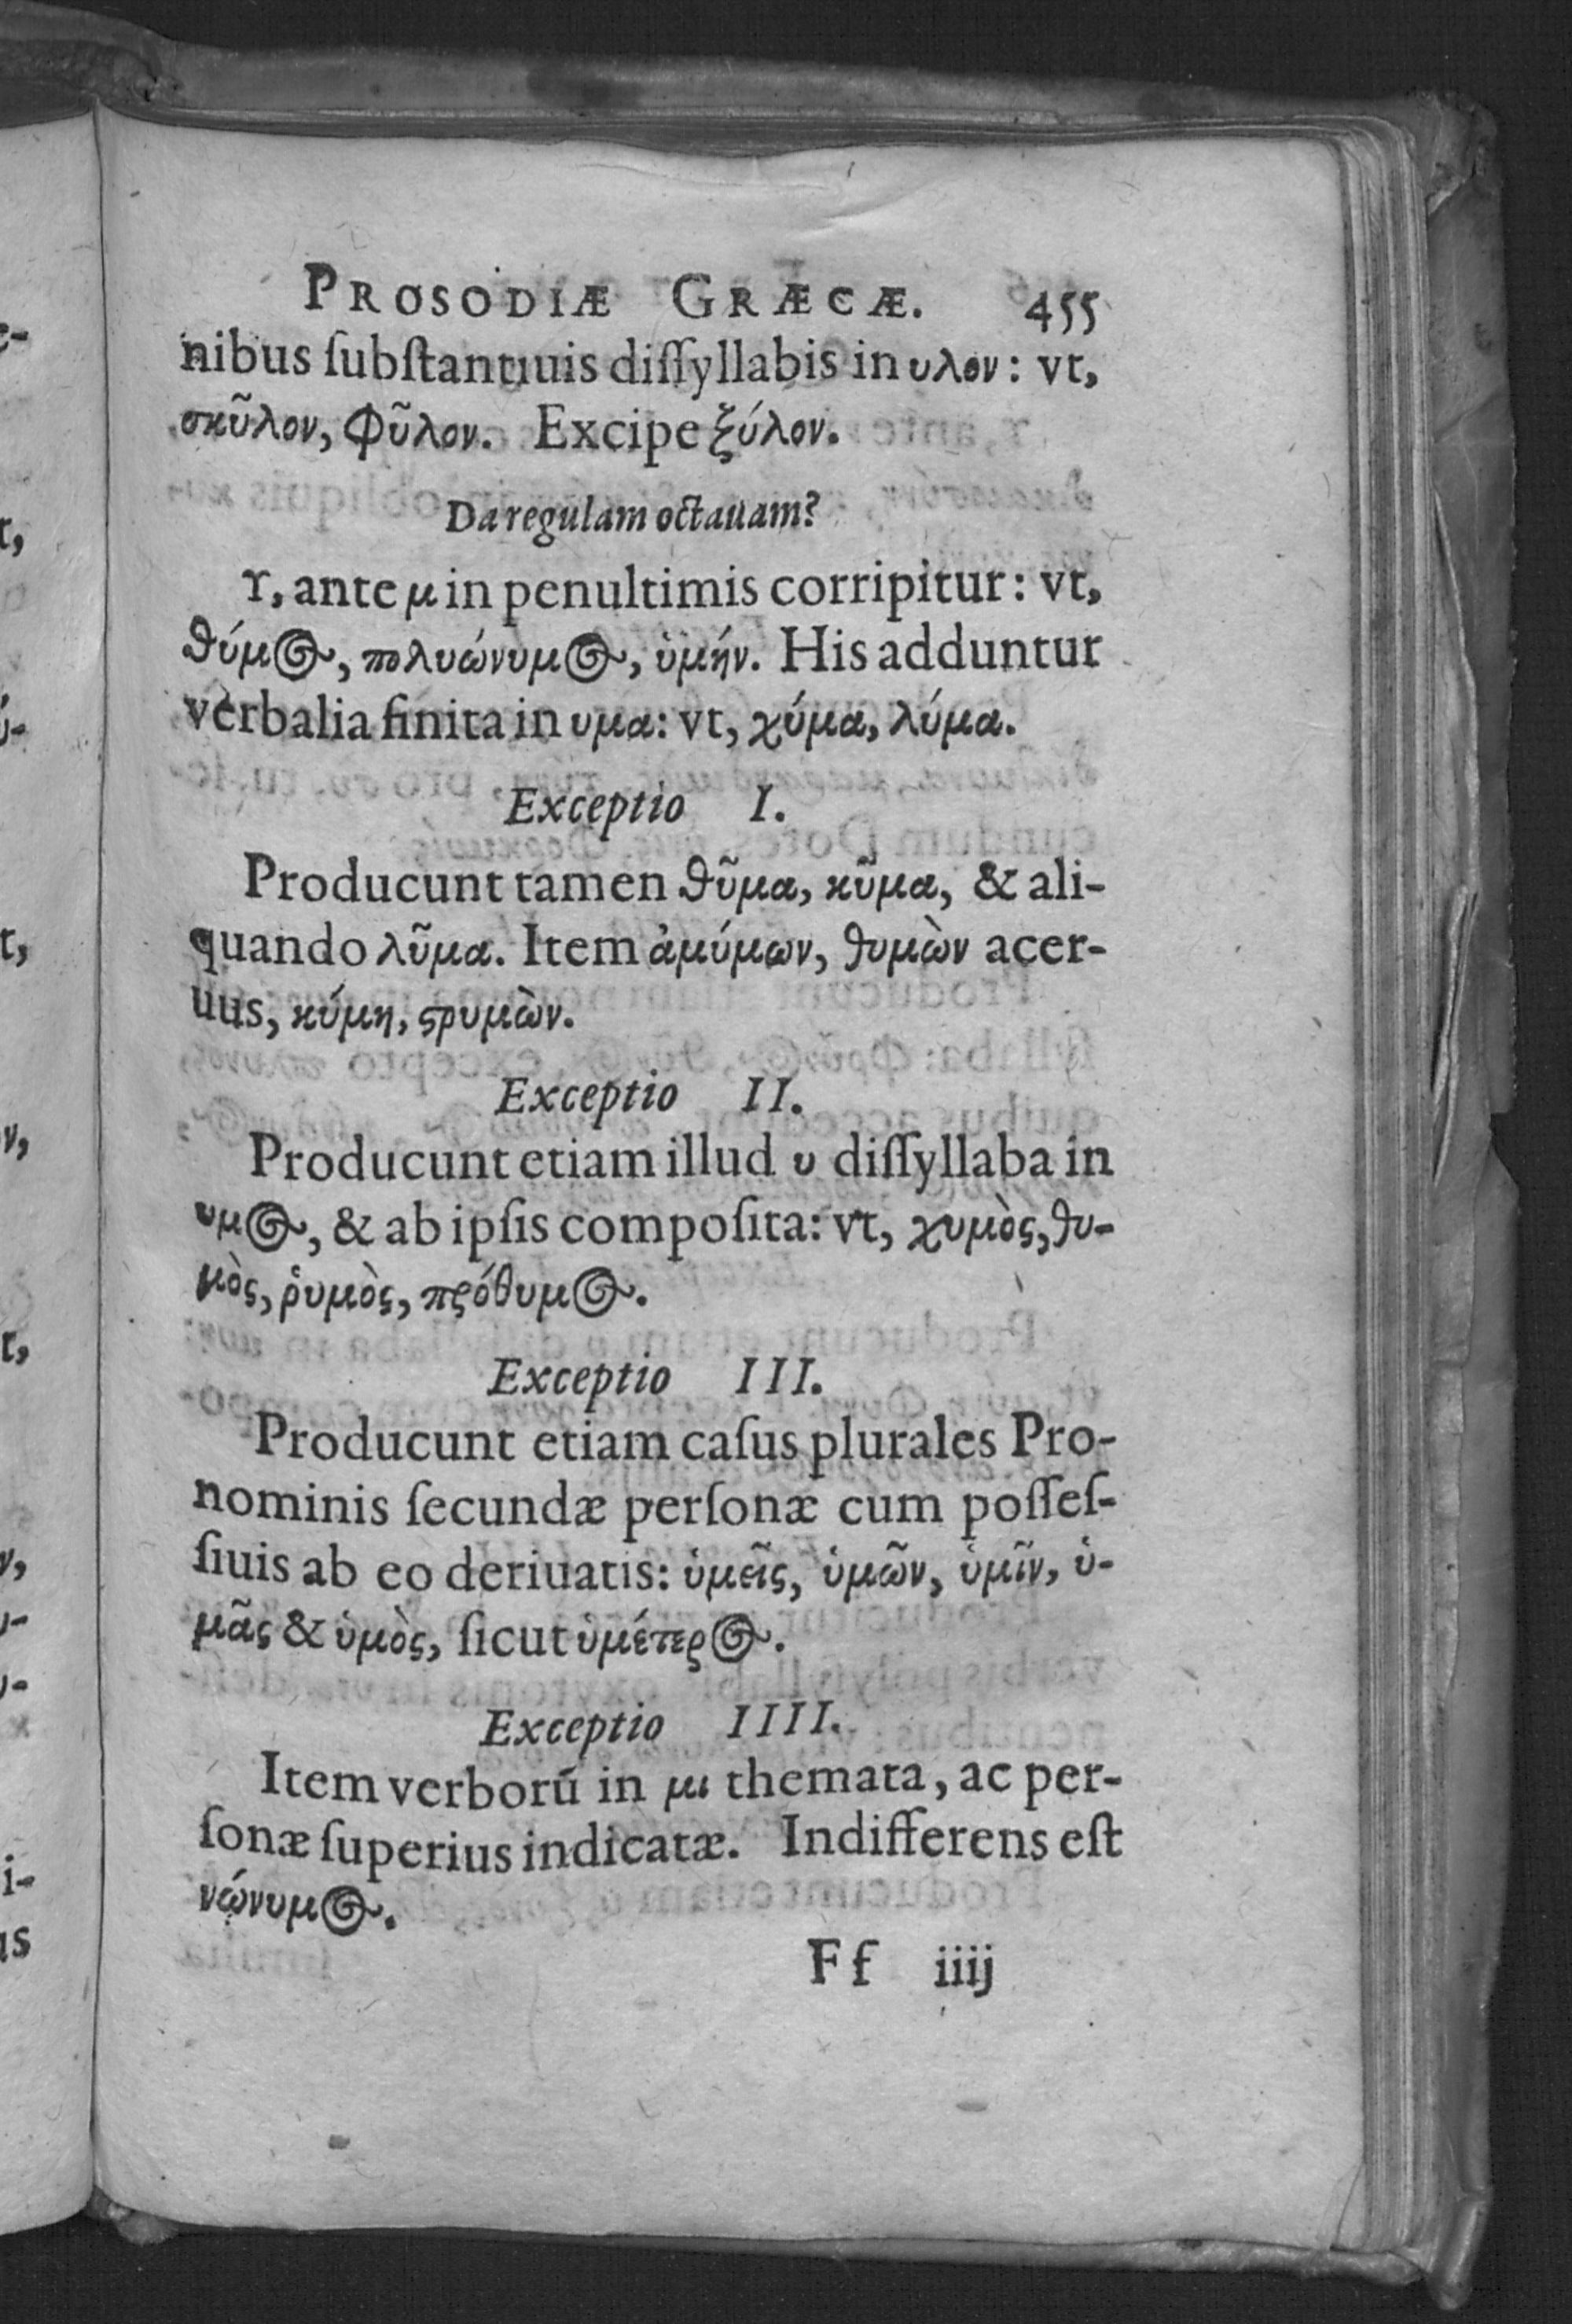 PROSODIÆ GRÆCÆ. 455
nibus ſubſtantiuis diſſyllabis in υλον: vt,
σκῦλον, φῦλον. Excipe ξύλον.
Da regulam octauam?
Υ, ante μ in penultimis corripitur: vt,
θύμος, πολυώνυμος, ὑμήν. His adduntur
verbalia finita in υμα: vt, χύμα, λύμα.
Exceptio I.
Producunt tamen θῦμα, κῦμα, & ali-
quando λῦμα. Item ἀμύμων, θυμὼν acer-
uus, κύμη, ϛρυμὼν.
Exceptio II.
Producunt etiam illud υ diſſyllaba in
υμος, & ab ipſis compoſita: vt, χυμὸς, θυ-
μὸς, ῥυμὸς, πρόθυμος.
Exceptio III.
Producunt etiam caſus plurales Pro-
nominis ſecundæ perſonæ cum poſſeſ-
ſiuis ab eo deriuatis: ὑμεῖς, ὑμῶν, ὑμῖν, ὑ-
μᾶς & ὑμὸς, ſicut ὑμέτερος.
Exceptio IIII.
Item verborū in μι themata, ac per-
ſonæ ſuperius indicatæ. Indifferens eſt
νώνυμος.
Ff iiij